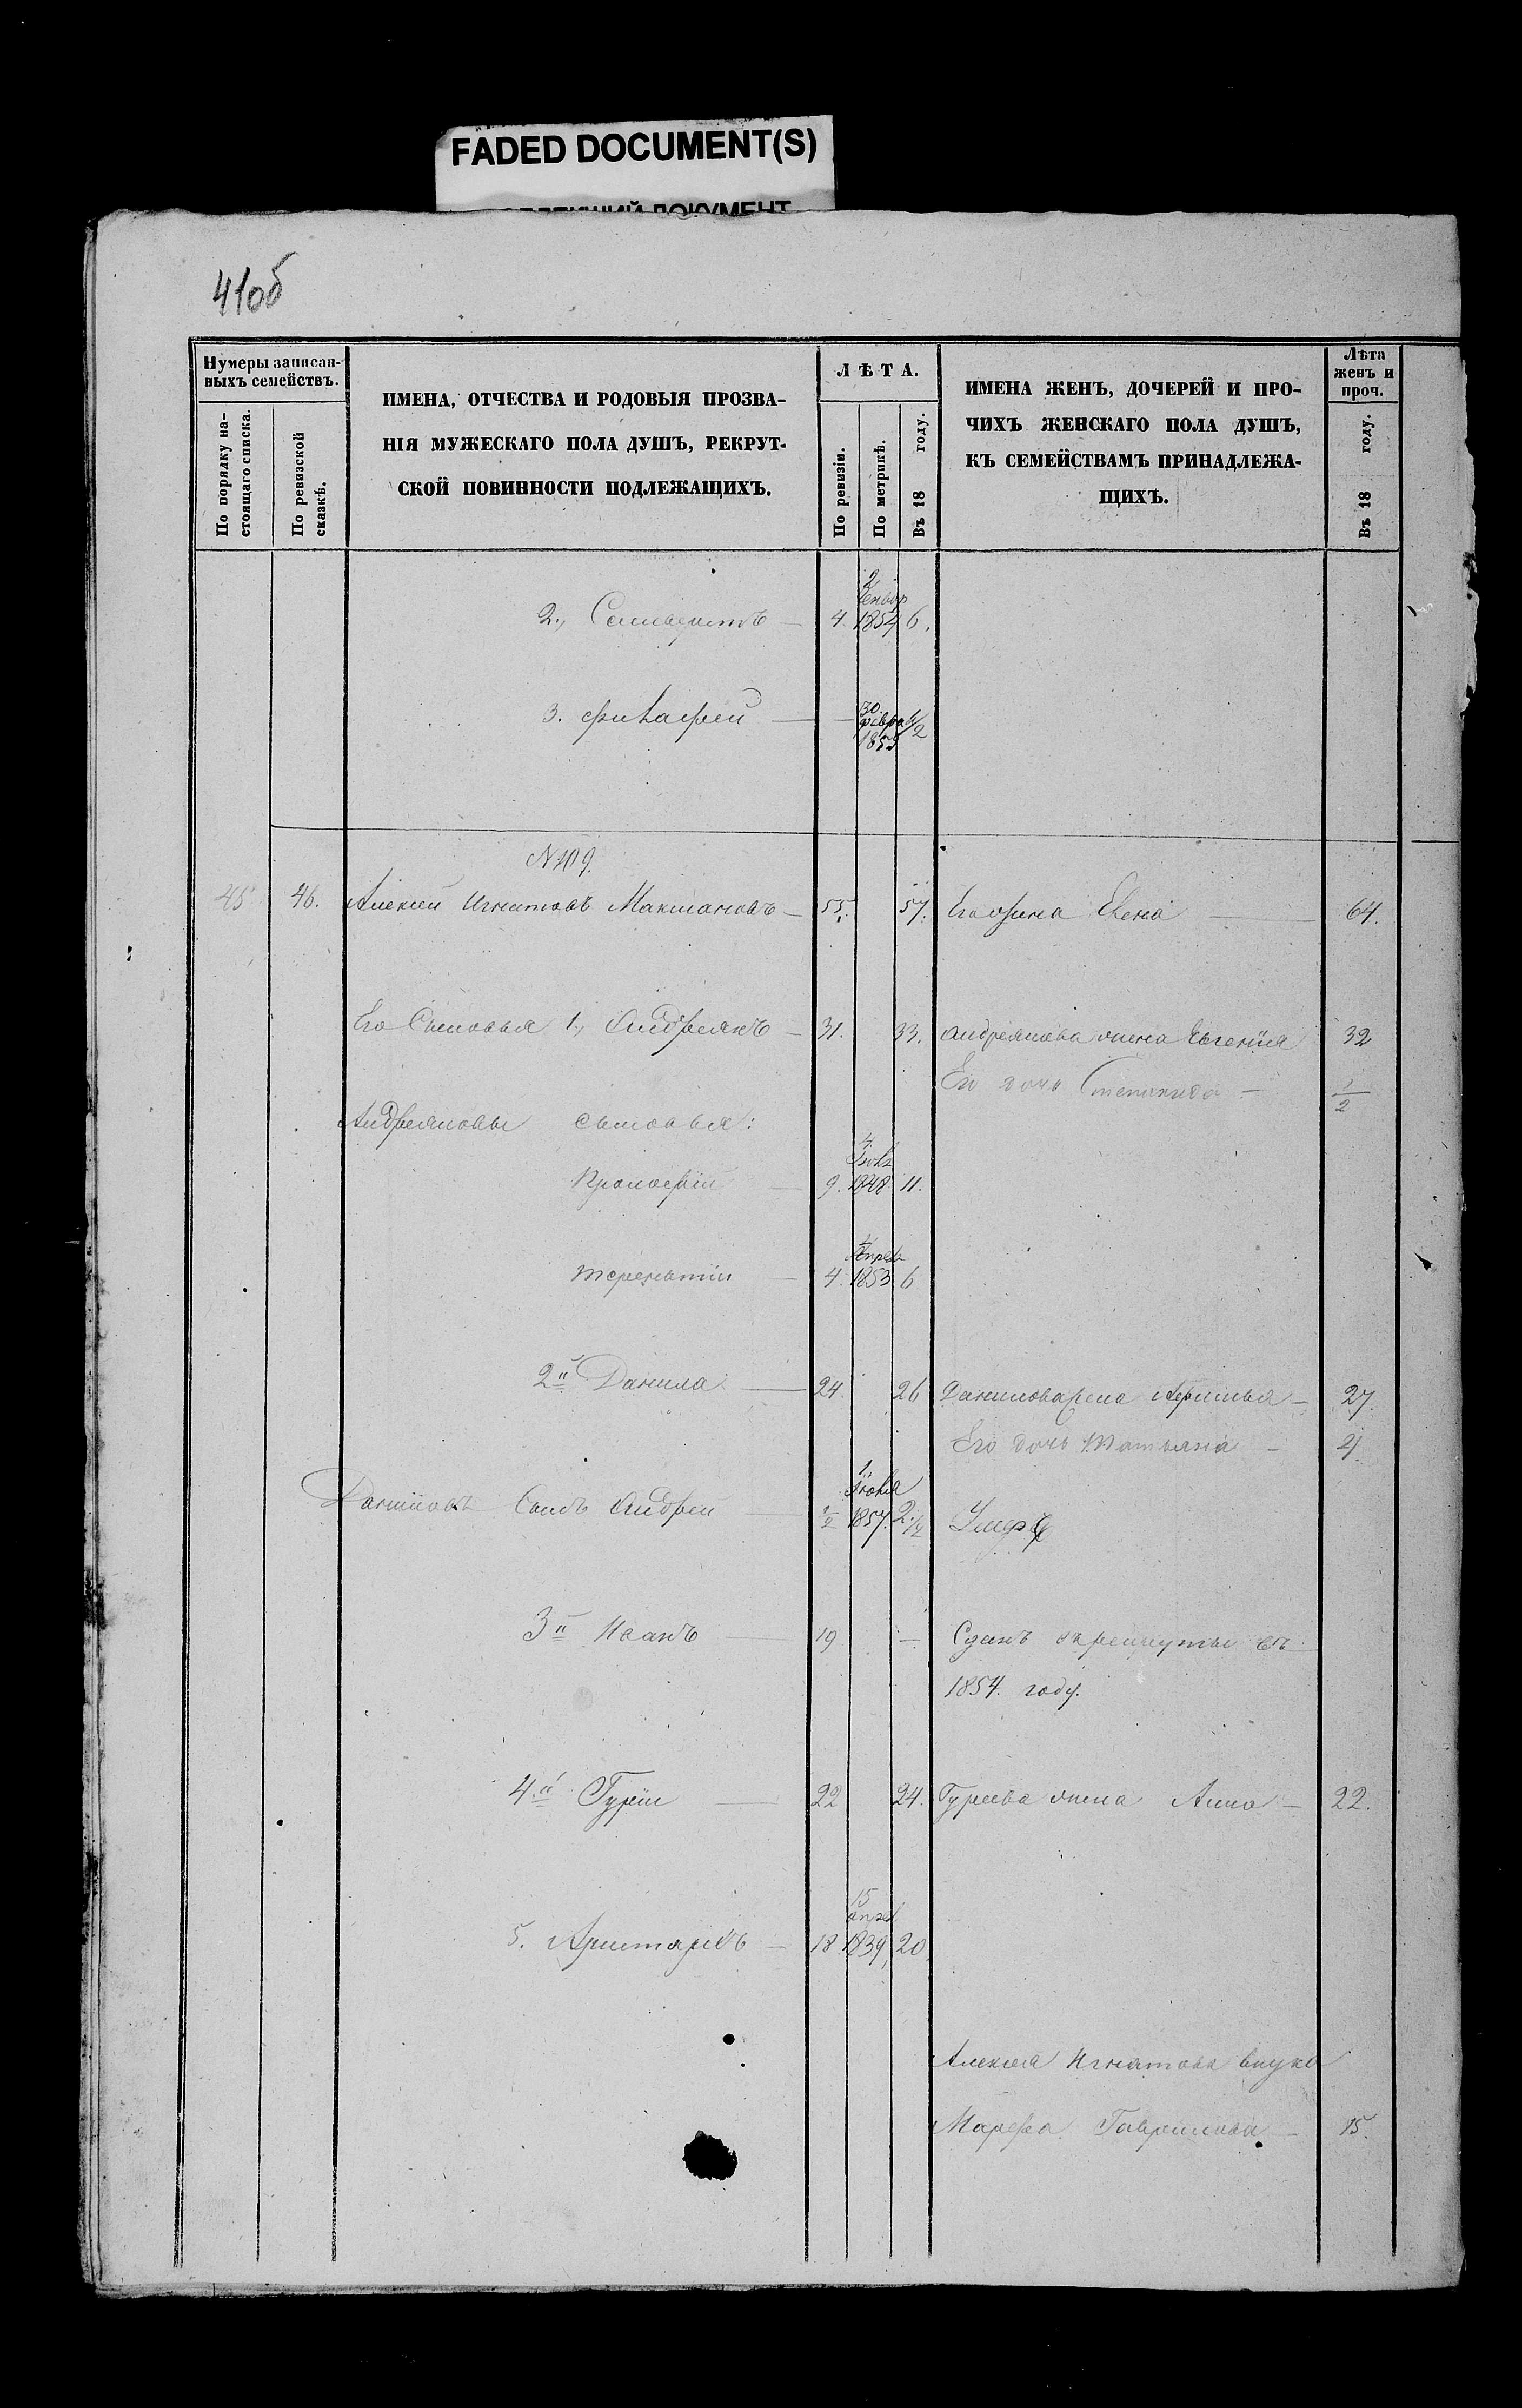 FADED DOCUMENT(S)
41об
Нумеры записан-
ныхъ семействъ.
По порядку на-
стоящаго списка.
По ревизской
сказкѣ.
ИМЕНА, ОТЧЕСТВА И РОДОВЫЯ ПРОЗВА-
НІЯ МУЖЕСКАГО ПОЛА ДУШЪ, РЕКРУТ-
СКОЙ ПОВИННОСТИ ПОДЛЕЖАЩИХЪ.
ЛѢТА.
По ревизіи.
По метрикѣ.
Въ 18 году.
ИМЕНА ЖЕНЪ, ДОЧЕРЕЙ И ПРО-
ЧИХЪ ЖЕНСКАГО ПОЛА ДУШЪ,
КЪ СЕМЕЙСТВАМЪ ПРИНАДЛЕЖА-
ЩИХЪ.
Лѣта
женъ и
проч.
Въ 18 году.
2., 4. 1854 6.
3. 30. 1/2
N 109.
45 46. Алексей Игнатовъ 55. 57. Его жена Елена 64.
Его Сыновья 1., Андреянъ 31. 33. Андреянова жена Евгенiя 32
Его дочь Степанида 1/2
Андреяновы сыновья:
4 Iюля
9. 1848 11.
Терентiи 4. 1853 6
2й Данила 24 26 Данилова жена 27.
Его дочь Татьяна 4
1 Iюля
Даниловъ Сынъ Андрей 1/2 1857. 2 1/2 Умеръ
3й Иванъ 19 — Сданъ въ рекруты въ
1854. году.
4й Гурiи 22 24. Гурьева жена Анна 22.
15 апрел
5. Аристархъ 18 1839 20
Алексея Игнатова внука
Марфа Гаврилова 15.